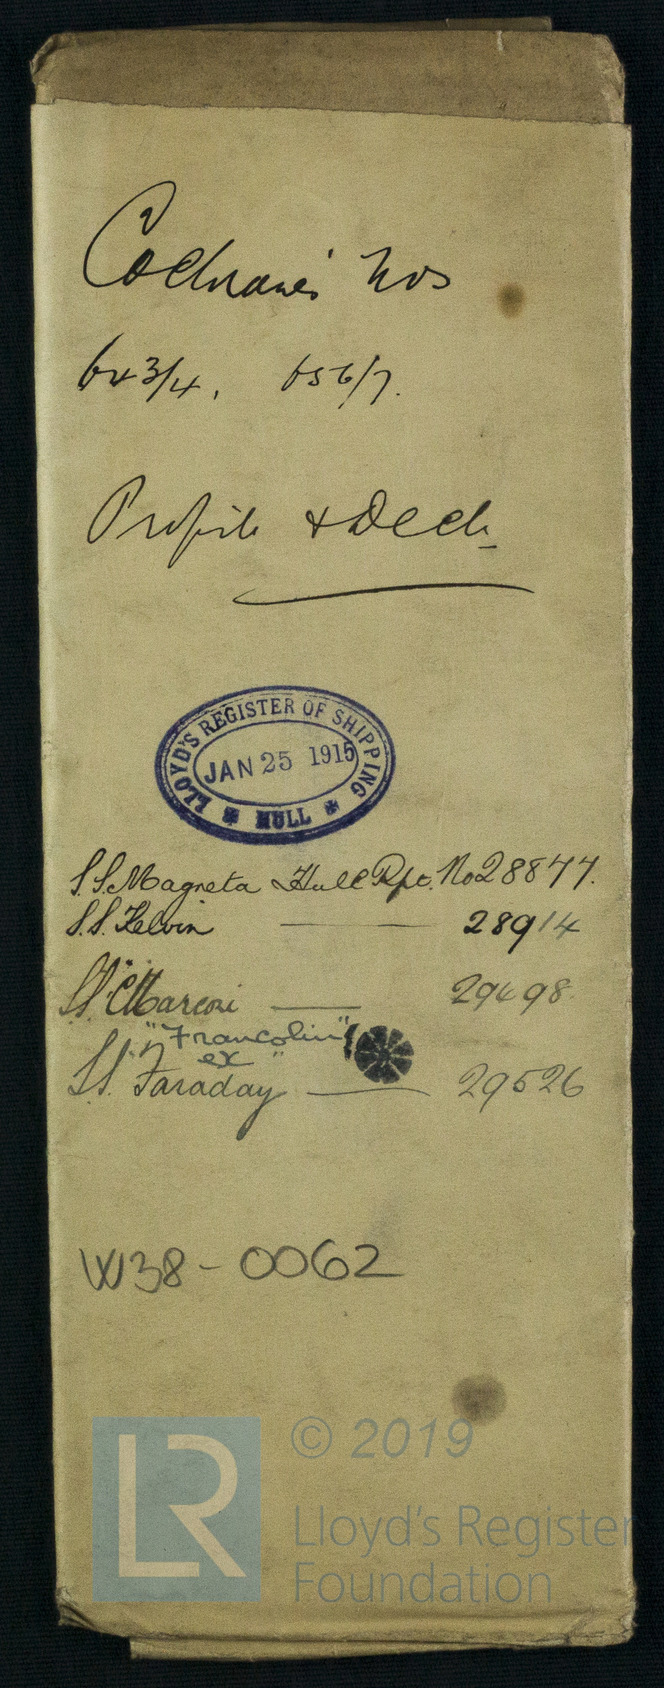 Cochranes Nos
643/4, 656/7.
Profile & Deck
LLOYD'S REGISTER OF SHIPPING
JAN 25 1915
HULL
S.S. Magneta Hull Rpt. No 28877.
S.S. Kelvin 28914
S.S. "Marconi
"Francolin"
ex
S.S. "Faraday" 29526
W38-0062
© 2019
LR
Lloyd's Register
Foundation